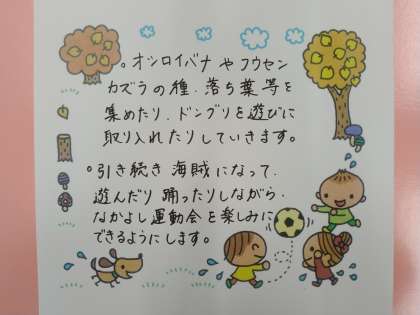 。オシロイバナやフウセン
カズラの種、落ち葉等を
集めたり、ドングリを遊びに
取り入れたりしていきます。
。引き続き海賊になって、
遊んだり踊ったりしながら、
なかよし運動会を楽しみに
できるようにします。